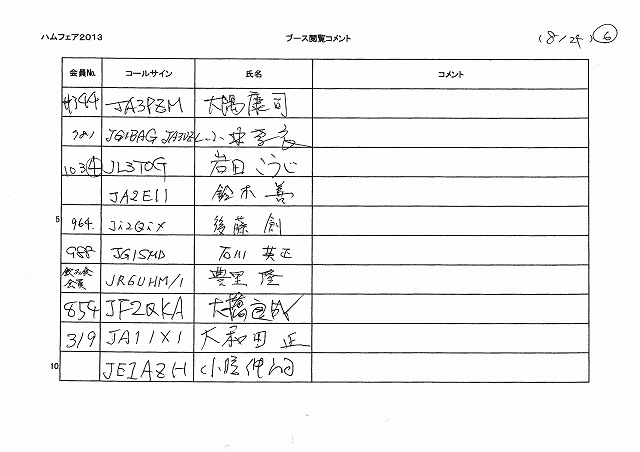 ハムフェア2013 ブース閲覧コメント (8/24) ⑥
会員No. コールサイン 氏名 コメント
#344 JA3PZM 大隅康司
781 JG1BAG
103④ JL3TOG 岩田こうじ
JA2EII 鈴木善
5 964. Ji2Qix 後藤創
988 JG1SMD 石川英正
会員 JR6UHM/1 豊里隆
854 JF2QKA 大橋
319 JA1IXI 大和田正
10 JE1AZH